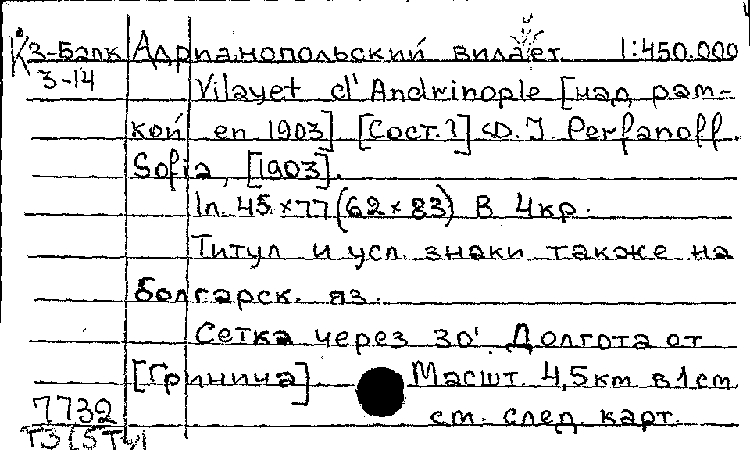 К З-Балк Адрианопольский вилает 1:450.000
3-14 Vilayet d'Andrinople [над рам-
кой en 1903] [Сост.?] D. J. Perfanoff.
Sofia, [1903].
1л. 45×77 (62×83) В 4 кр.
Титул и усл. знаки также на
болгарск. яз.
Сетка через 30'. Долгота от
[Гринича] Масшт. 4,5 км в 1 см
7732 см. след. карт.
ТЗ